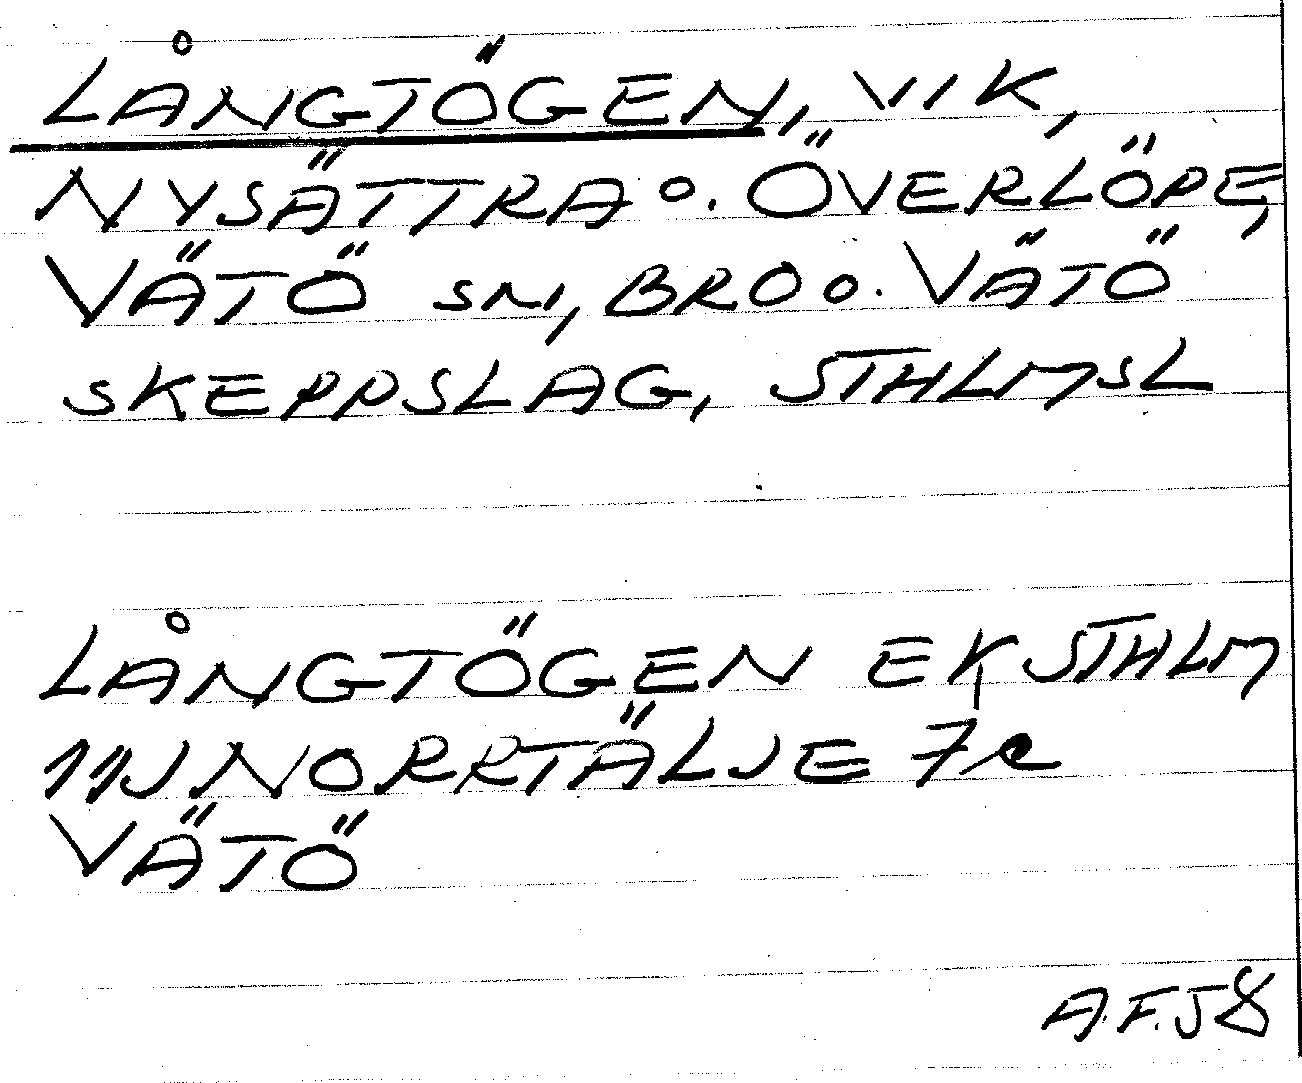 LÅNGTÖGEN, VIK,
NYSÄTTRA O. ÖVERLÖPE,
VÄTÖ SN, BRO O. VÄTÖ
SKEPPSLAG, STHLMSL
LÅNGTÖGEN EK STHLM
11J NORRTÄLJE 7c
VÄTÖ
A.F.J8